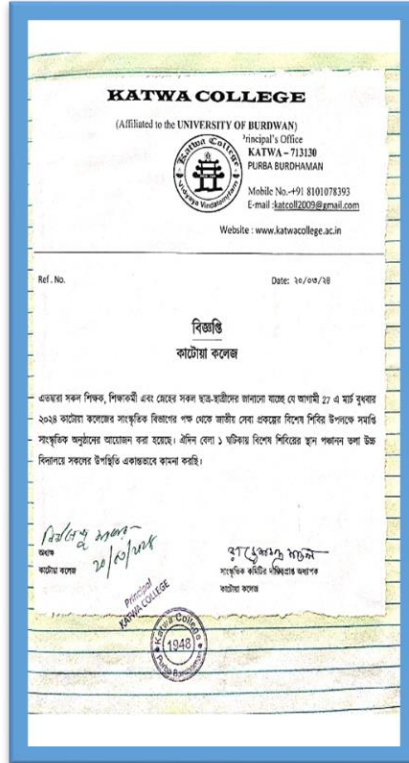 KATWA COLLEGE
(Affiliated to the UNIVERSITY OF BURDWAN)
Principal's Office
KATWA – 713130
PURBA BURDHAMAN
Mobile No.-+91 8101078393
E-mail :katcoll2009@gmail.com
Website : www.katwacollege.ac.in
Katwa College
Ref . No.
Date: ২০/০৩/২৪
বিজ্ঞপ্তি
কাটোয়া কলেজ
এতদ্বারা সকল শিক্ষক, শিক্ষাকর্মী এবং স্নেহের সকল ছাত্র-ছাত্রীদের জানানো যাচ্ছে যে আগামী 27 এ মার্চ বুধবার
২০২৪ কাটোয়া কলেজের সাংস্কৃতিক বিভাগের পক্ষ থেকে জাতীয় সেবা প্রকল্পের বিশেষ শিবির উপলক্ষে সমাপ্তি
সাংস্কৃতিক অনুষ্ঠানের আয়োজন করা হয়েছে। ঐদিন বেলা ১ ঘটিকায় বিশেষ শিবিরের স্থান পঞ্চানন তলা উচ্চ
বিদ্যালয়ে সকলের উপস্থিতি একান্তভাবে কামনা করছি।
২০/৩/২৪
অধ্যক্ষ
কাটোয়া কলেজ
Principal
KATWA COLLEGE
সাংস্কৃতিক কমিটির দায়িত্বপ্রাপ্ত অধ্যাপক
কাটোয়া কলেজ
Katwa College
1948